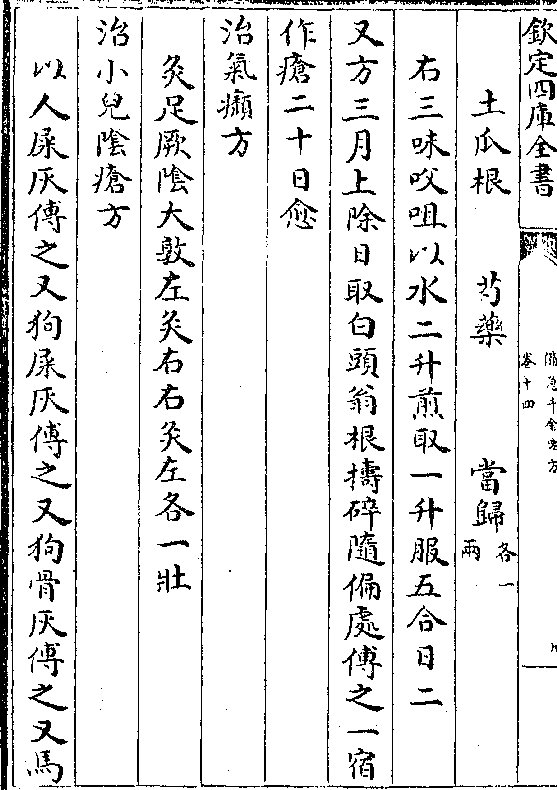 欽定四庫全書
備急千金要方
卷十四
土瓜根　芍藥　當歸各一兩
右三味㕮咀以水二升煎取一升服五合日二
又方三月上除日取白頭翁根擣碎隨偏處傅之一宿
作瘡二十日愈
治氣㿗方
灸足厥陰大敦左灸右右灸左各一壯
治小兒陰瘡方
以人屎灰傅之又狗屎灰傅之又狗骨灰傅之又馬